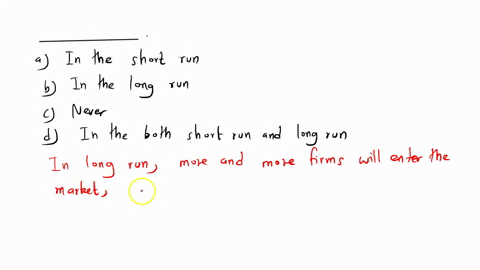 a) In the short run
b) In the long run
c) Never
d) In the both short run and long run
In long run, more and more firms will enter the
market,